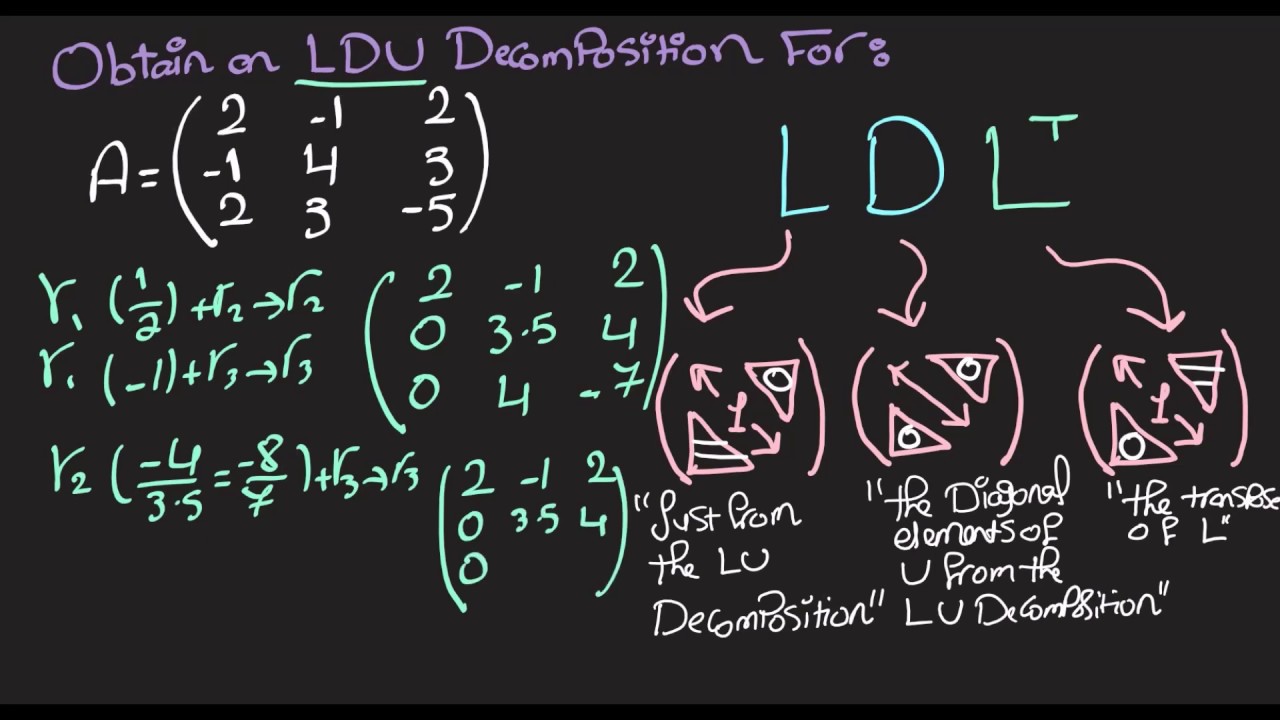 Obtain an LDU Decomposition For:
A = ( 2 -1 2
-1 4 3
2 3 -5 )
L D Lᵀ
r₁ (1/2) + r₂ → r₂
r₁ (-1) + r₃ → r₃
( 2 -1 2
0 3.5 4
0 4 -7 )
r₂ (-4/3.5 = -8/7) + r₃ → r₃
( 2 -1 2
0 3.5 4
0 )
1
0
0
0
1
0
"Just from
the LU
Decomposition"
"the Diagonal
elements of
U from the
LU Decomposition"
"the transpose
of L"